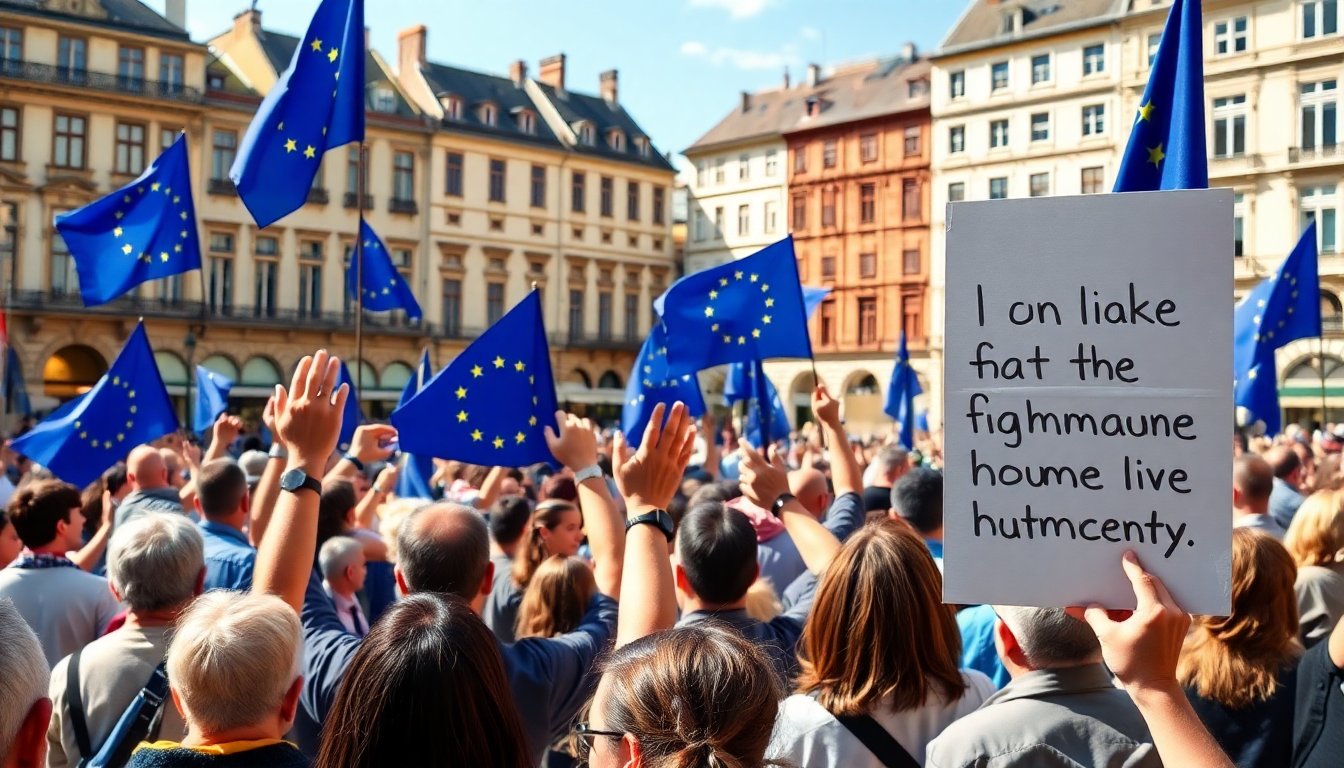 I on liake
fiat the
fighmmaune
houme live
hutmcenty.